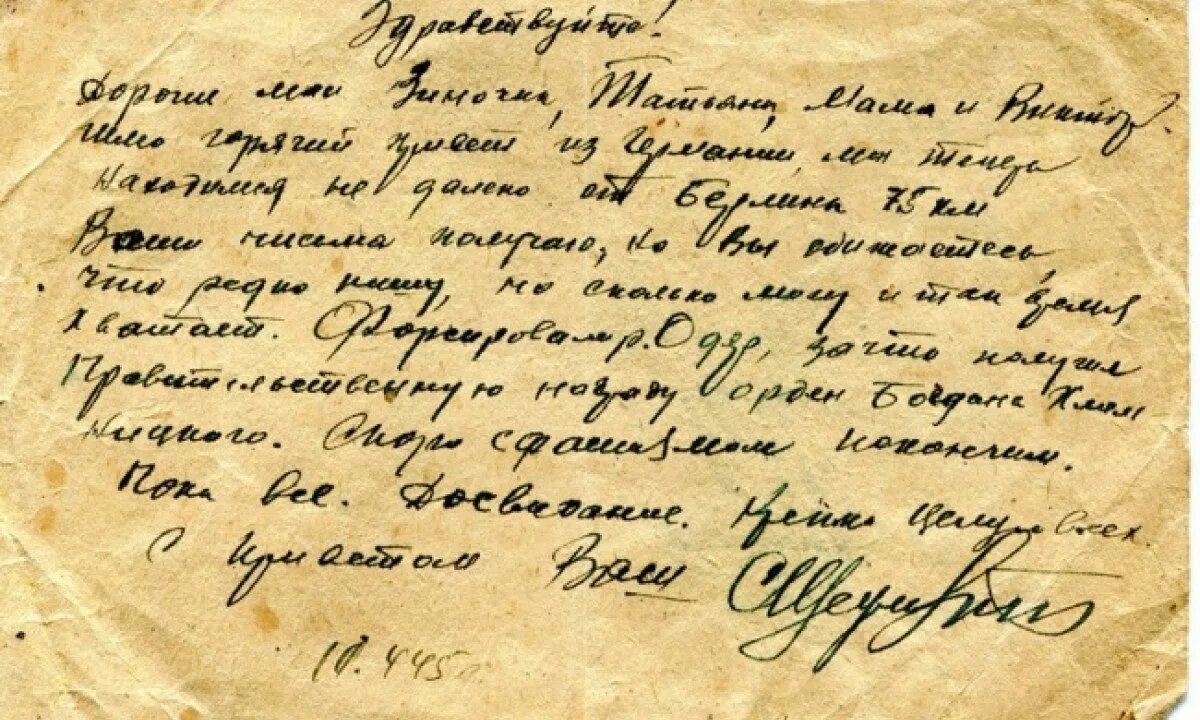 Здравствуйте!
Дорогие мои Зиночка, Татьяна, Мама и Виктор.
шлю горячий привет из Германии, мы теперь
находимся не далеко от Берлина 75 км
Ваши письма получаю, но Вы обижаетесь,
что редко пишу, но сколько могу и так
хватает. Форсировали р. Одер, за что получил
Правительственную награду орден Богдана Хмель
ницкого. Скоро с фашизмом покончим.
Пока все. Досвидание. Крепко целую всех.
С приветом Ваш